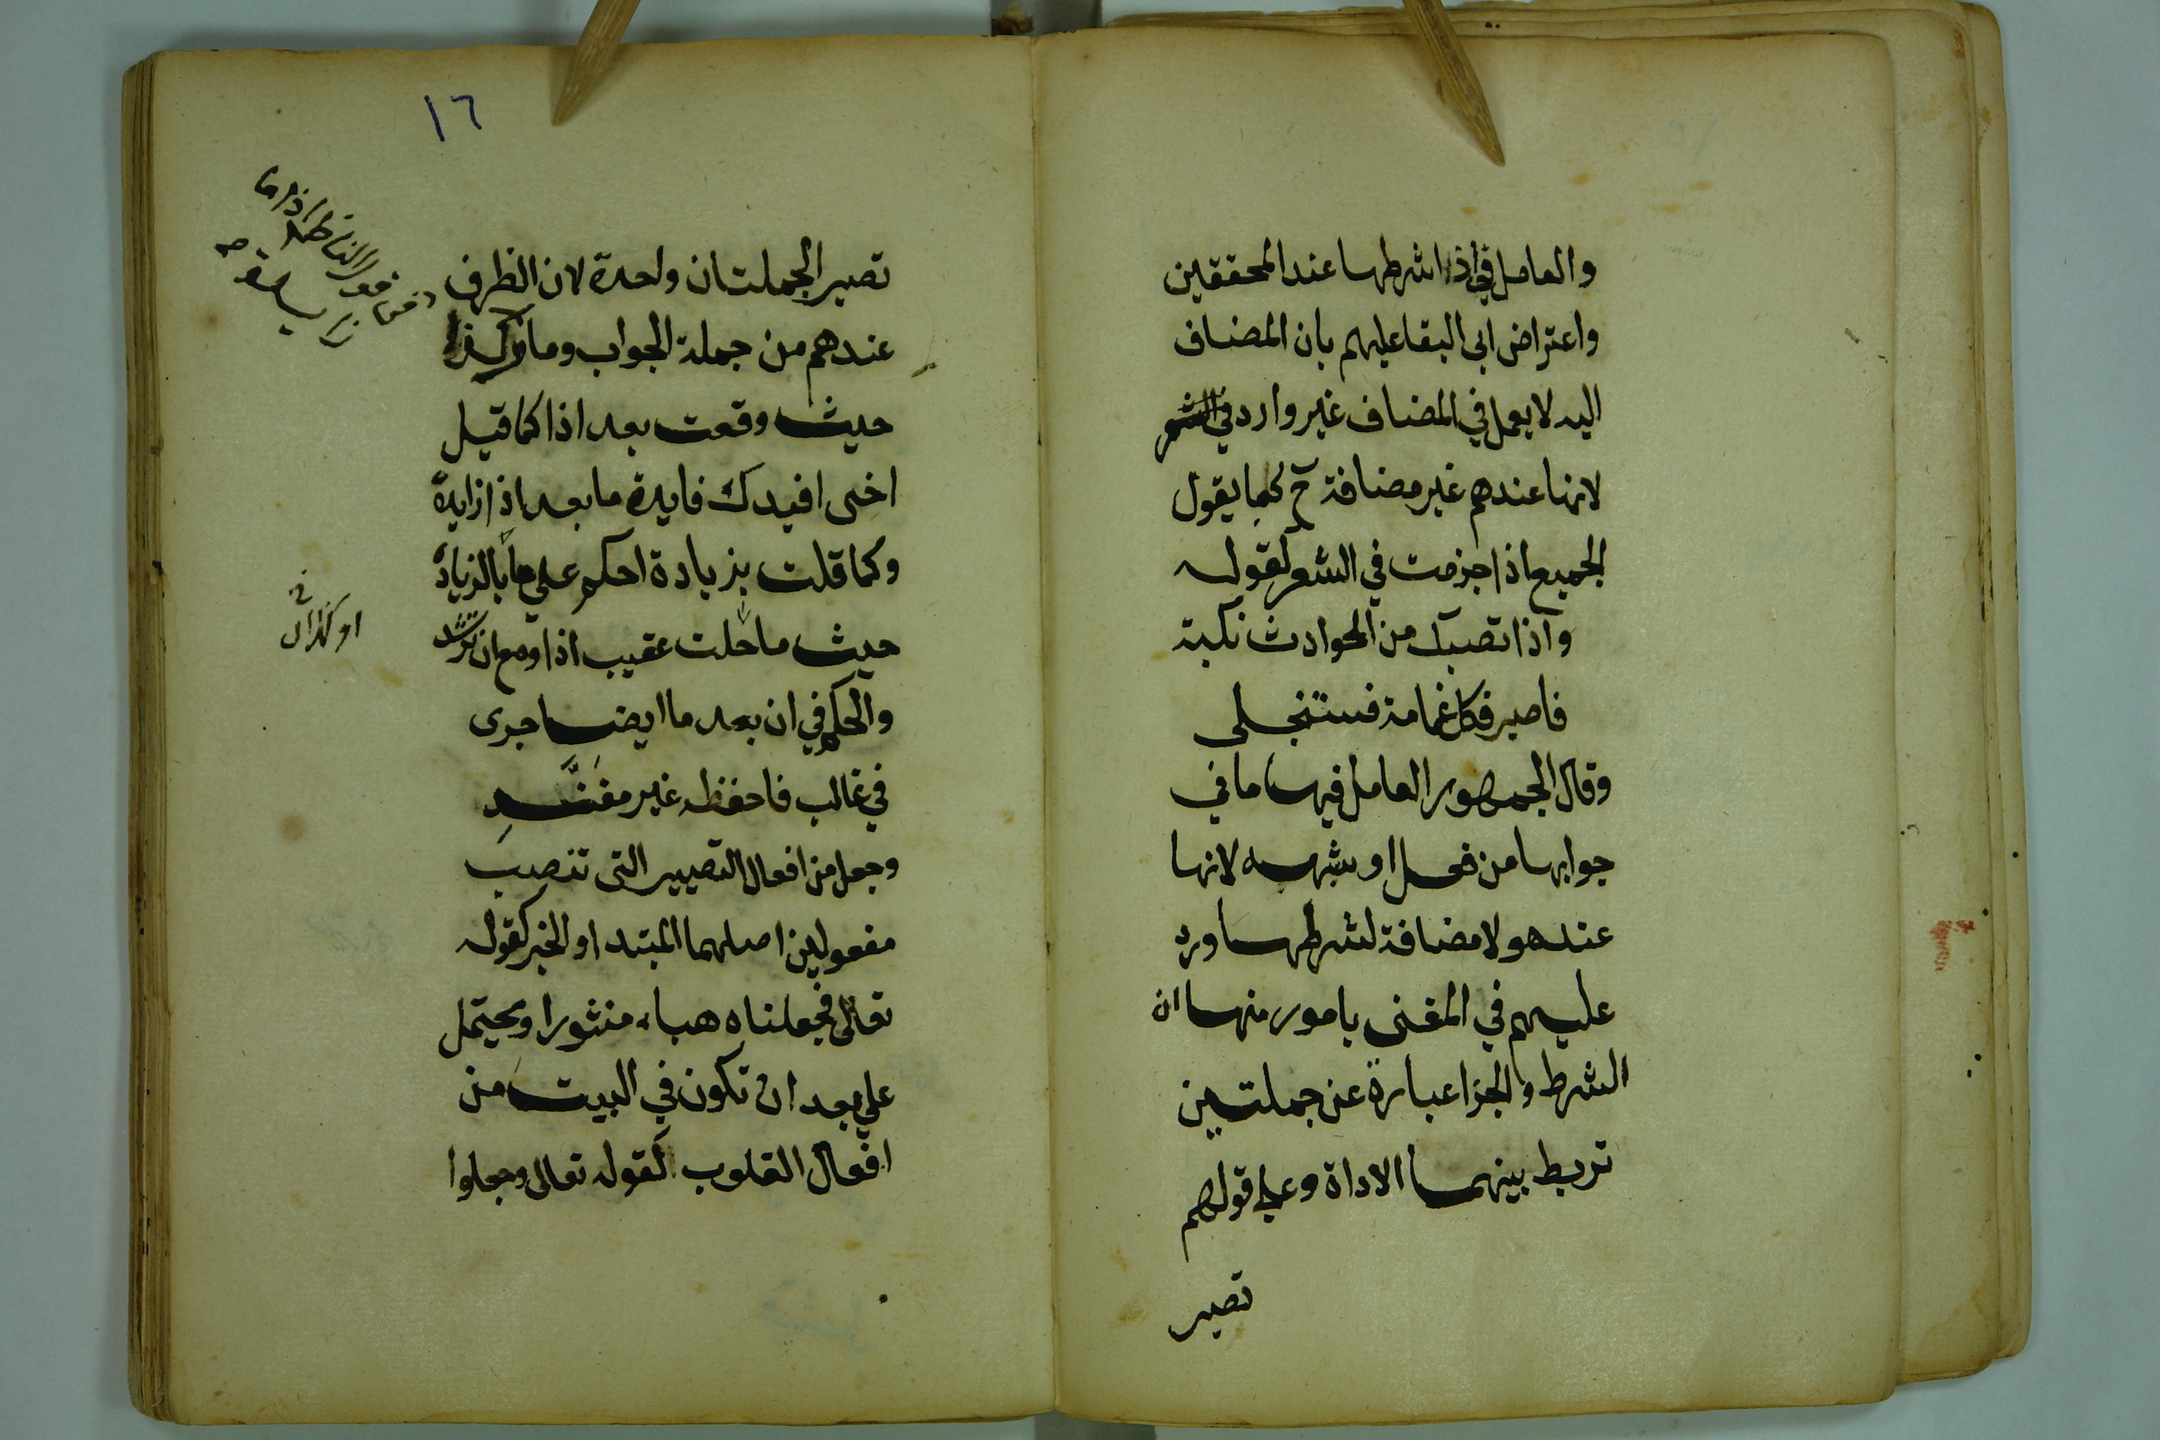 والعامل في اذا شرطها عند المحققين
واعتراض ابى البقا عليهم بان المضاف
اليه لا يعمل في المضاف غير وارد
لانها عندهم غير مضافة ح كما يقول
الجميع اذا جزمت في الشعر لقوله
واذا تصبك من الحوادث نكبة
فاصبر فكل غمامة فستنجلى
وقال الجمهور العامل فيها ما في
جوابها من فعل او شبهه لانها
عند هولا مضافة لشرطها ورد
عليهم في المغنى بامور منها ان
الشرط والجزا عبارة عن جملتين
تربط بينهما الاداة وعلى قولهم
تصير
١٦
تصير الجملتان واحدة لان الظرف
عندهم من جملة الجواب وما
حيث وقعت بعد اذا كما قيل
اخى افيدك فايدة ما بعد اذا زايدة
وكما قلت بزيادة احكم على ما بالزيادة
حيث ما حلت عقيب اذا ومع ان
والحكم في ان بعد ما ايضا جرى
في غالب فاحفظه غير مفنَّدِ
وجعل من افعال التصيير التى تنصب
مفعولين اصلهما المبتدا والخبر كقوله
تعالى فجعلناه هباء منثورا ويحتمل
على بعد ان تكون في البيت من
افعال القلوب كقوله تعالى وجعلوا